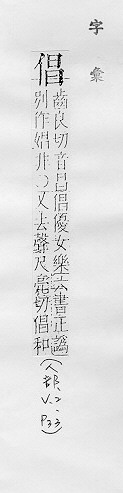 字彙
倡
齒良切音昌倡優女樂六書正譌
別作娼非○又去聲尺亮切倡和
(人部,
V.2-
P33)